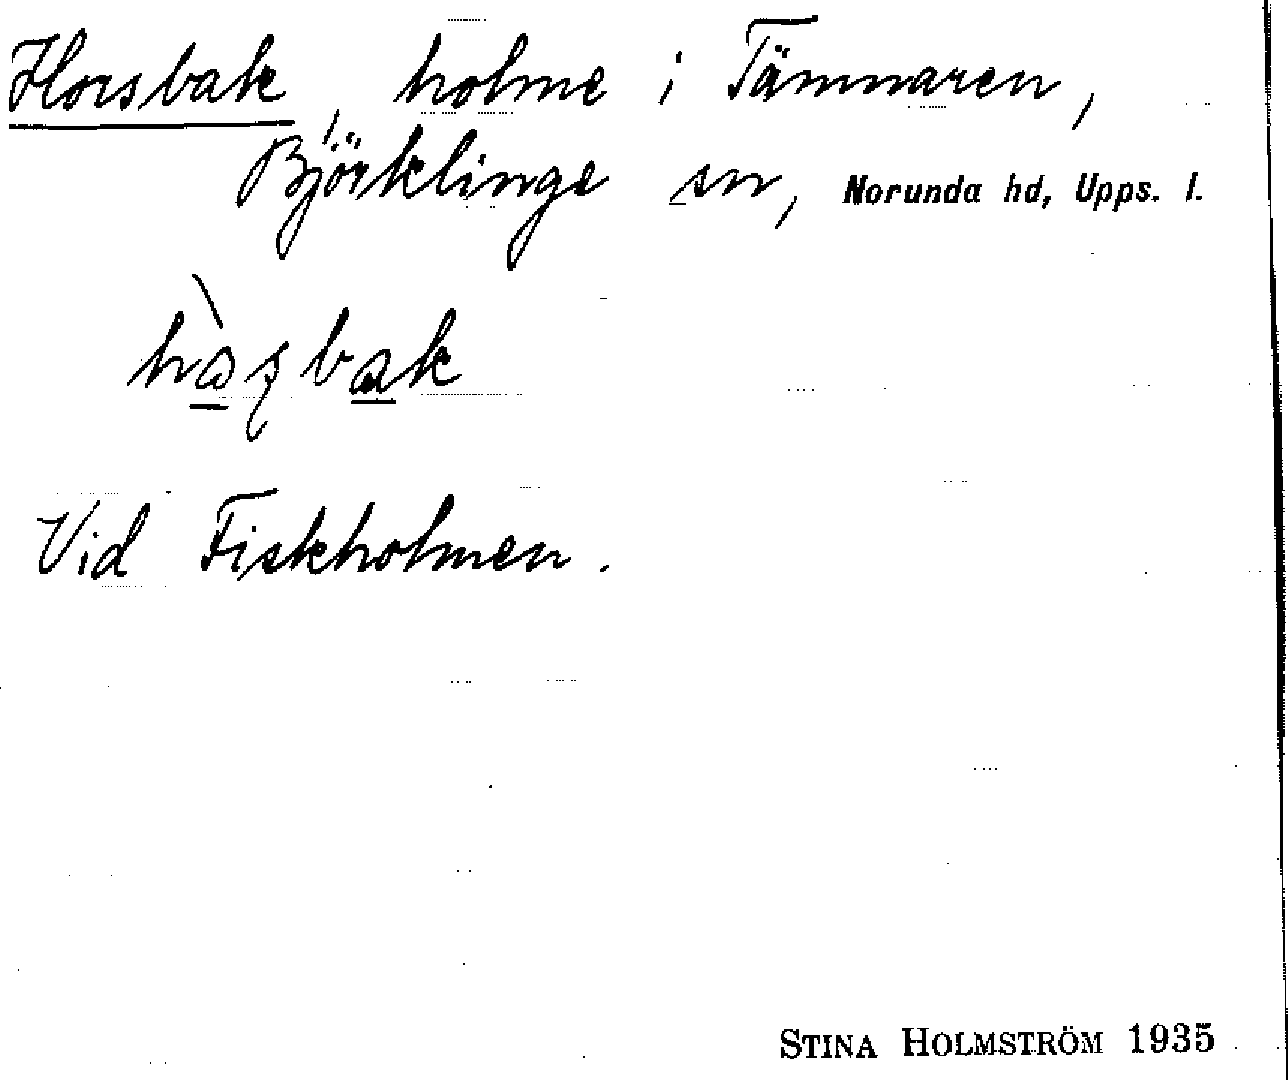 Horsbak, holme i Tämnaren,
Björklinge sn, Norunda hd, Upps. l.
Vid Fiskholmen.
STINA HOLMSTRÖM 1935